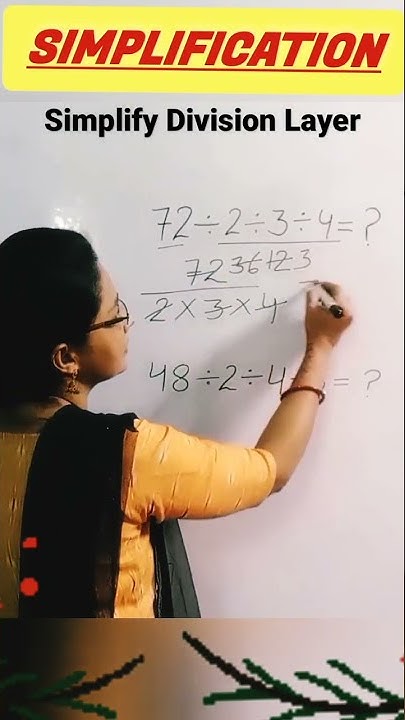 SIMPLIFICATION
Simplify Division Layer
72÷2÷3÷4=?
72 36 12 3
2×3×4
48÷2÷4 = ?